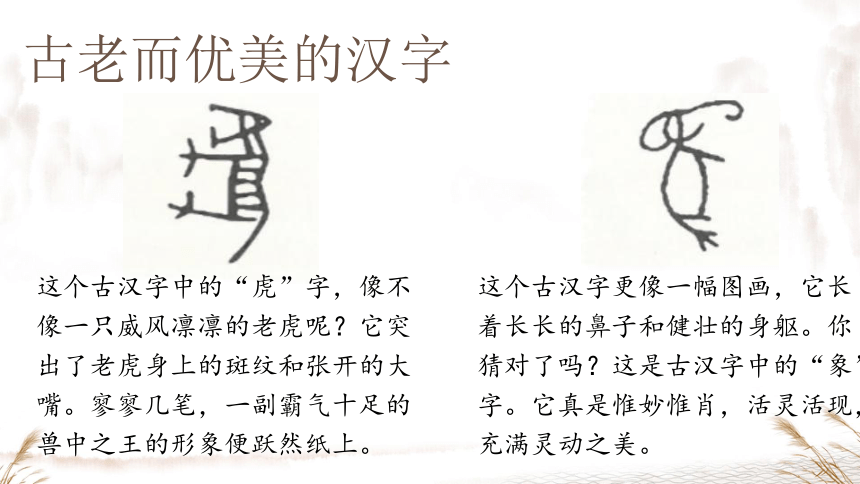 古老而优美的汉字
这个古汉字中的“虎”字，像不
像一只威风凛凛的老虎呢？它突
出了老虎身上的斑纹和张开的大
嘴。寥寥几笔，一副霸气十足的
兽中之王的形象便跃然纸上。
这个古汉字更像一幅图画，它长
着长长的鼻子和健壮的身躯。你
猜对了吗？这是古汉字中的“象”
字。它真是惟妙惟肖，活灵活现，
充满灵动之美。